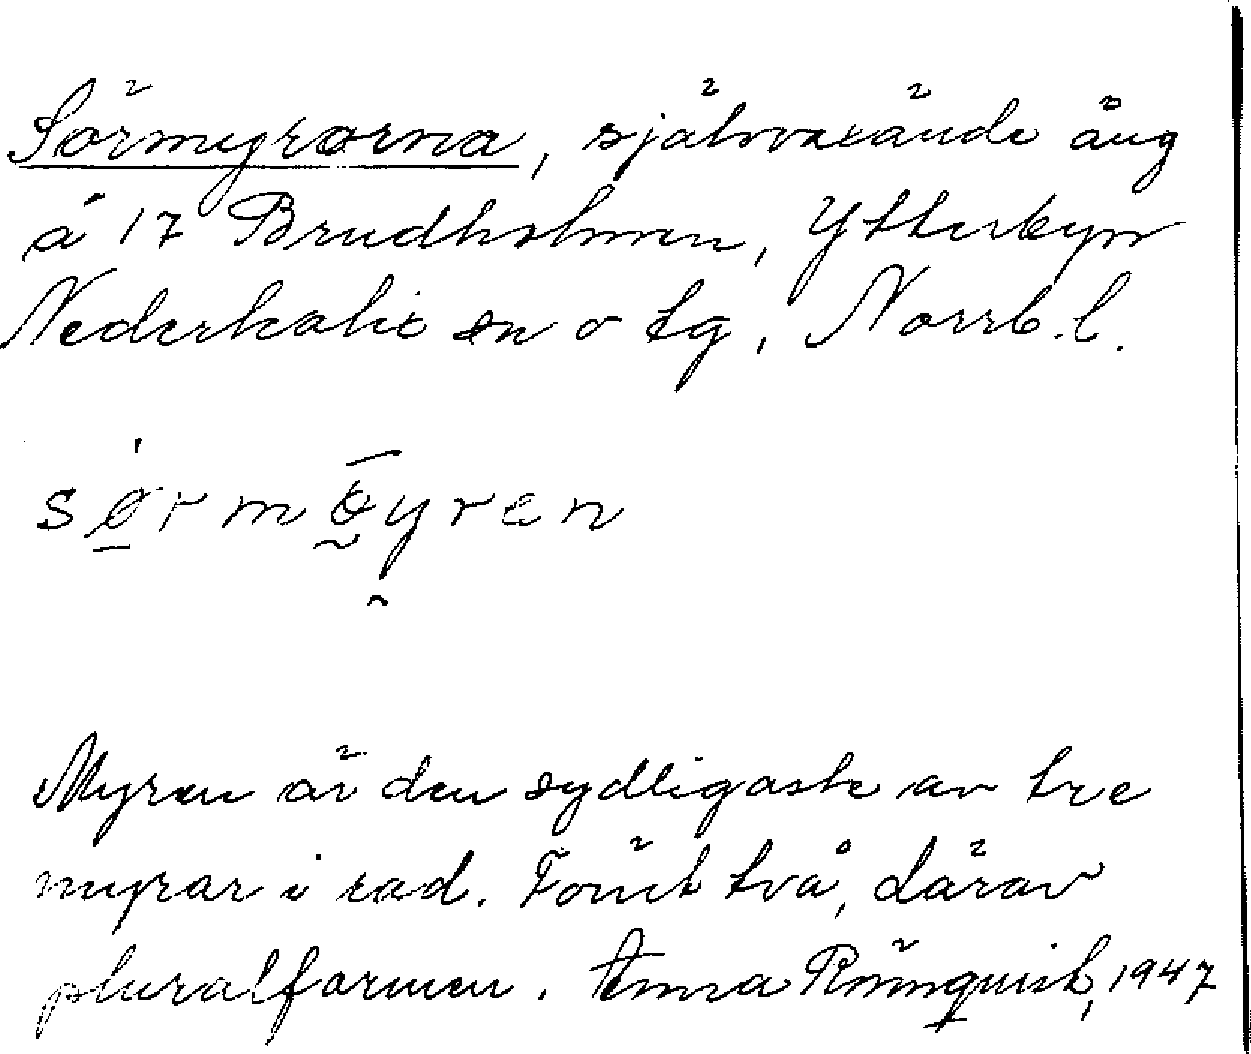 Sörmyrorna, självväxände äng
å 17 Brudholmen, Ytterbyn
Nederkalix sn o tg, Norrb. l.
sørmøyren
Myren är den sydligaste av tre
myrar i rad. Förut två, därav
pluralformen. Anna Rönnquist, 1947